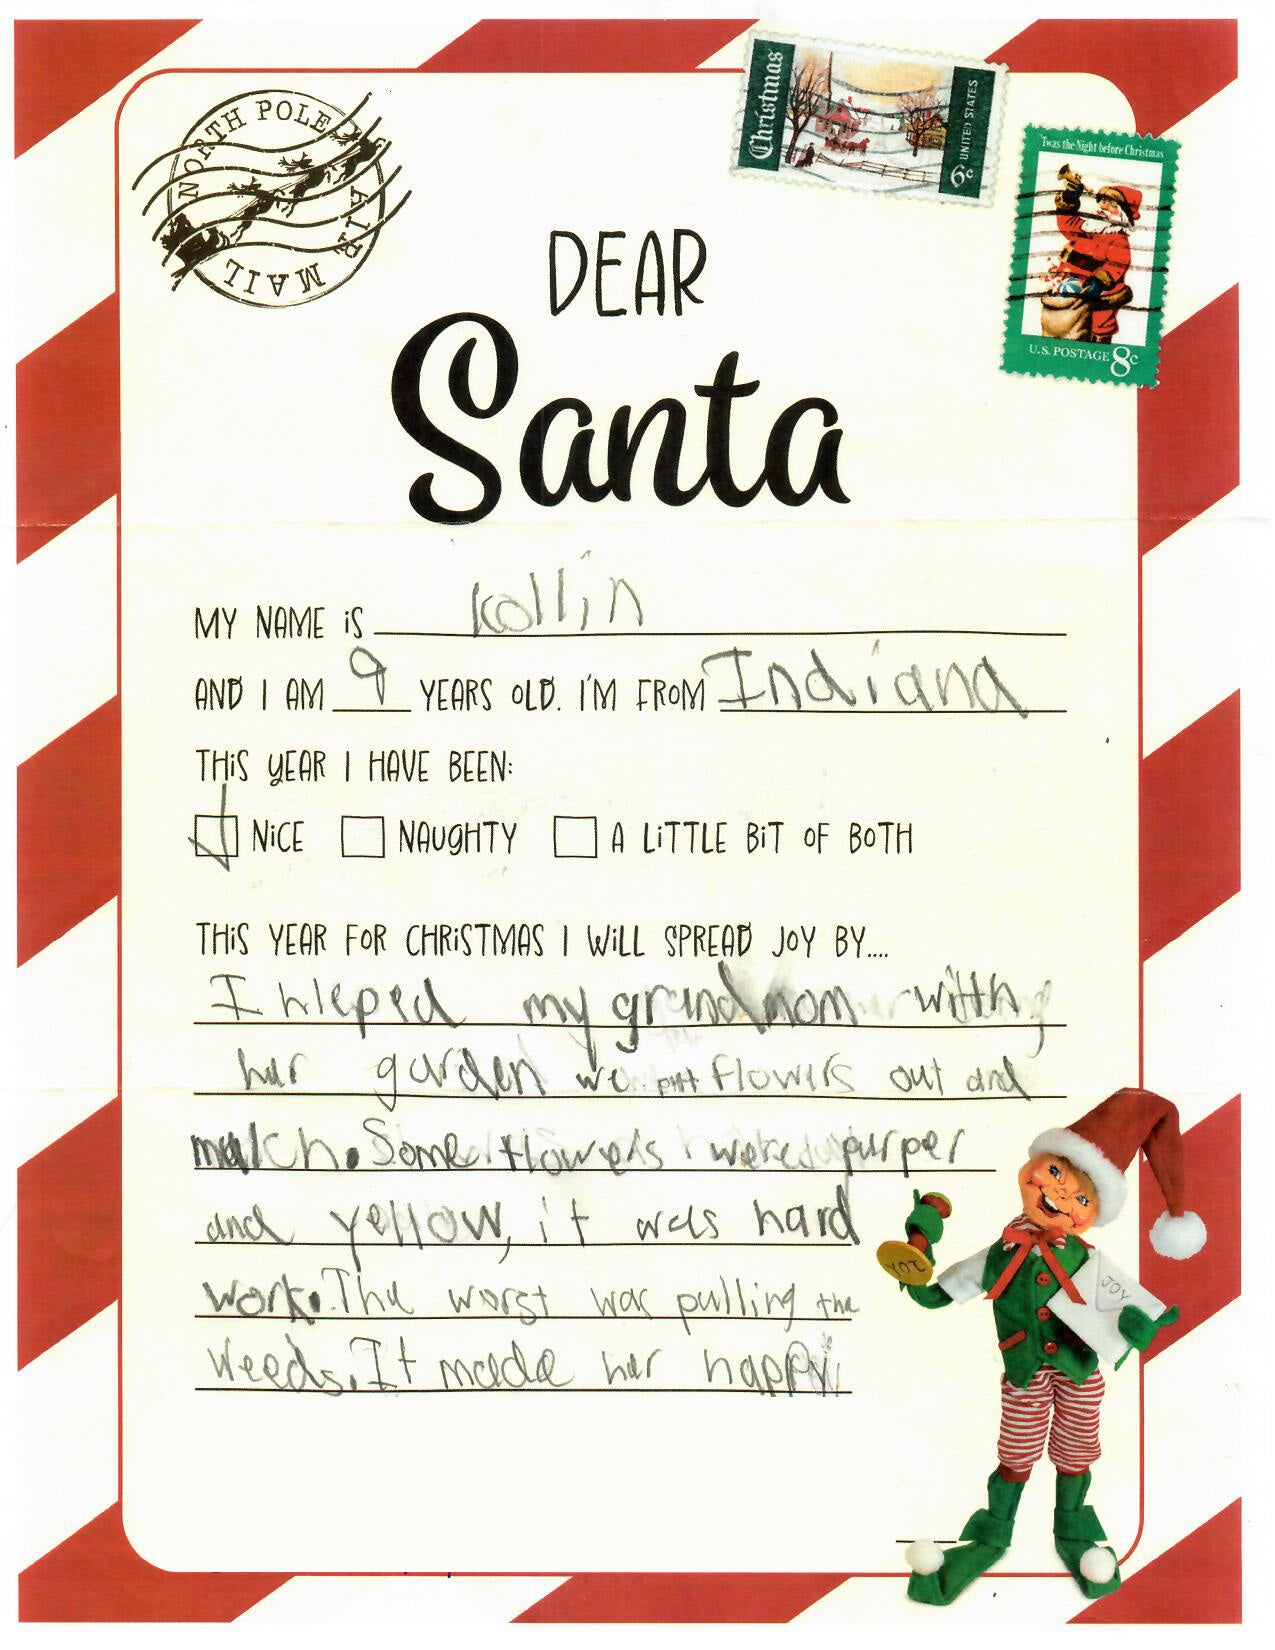 NORTH POLE
AIR MAIL
Christmas
6c UNITED STATES
'Twas the Night before Christmas
U.S. POSTAGE 8c
DEAR
Santa
MY NAME iS kollin
AND I AM 9 YEARS OLD. I'M FROM Indiana
THiS YEAR I HAVE BEEN:
NiCE NAUGHTY A LiTTLE BiT OF BOTH
THiS YEAR FOR CHRiSTMAS I WiLL SPREAD JOY BY....
I hleped my grandmom witth
her garden we putt flowers out and
mulch. Some flowers were purper
and yellow, it was hard
work. The worst was pulling the
weeds. It made her happy
JOY
JOY